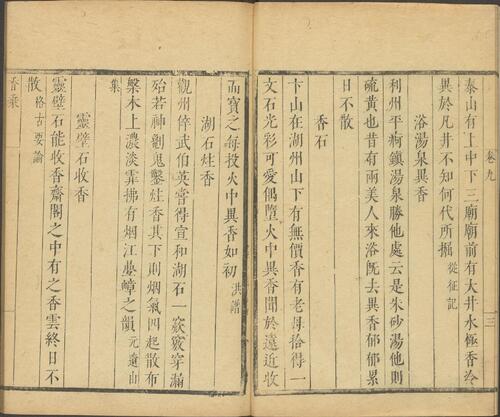 泰山有上中下三廟廟前有大井水極香冷
異於凡井不知何代所掘 從征記
浴湯泉異香
利州平痾鎮湯泉勝他處云是朱砂湯他則
硫黃也昔有兩美人來浴既去異香郁郁累
日不散
香石
卞山在湖州山下有無價香有老母拾得一
文石光彩可愛偶墮火中異香聞於遠近收
卷九
三
而寶之每投火中異香如初 洪譜
湖石炷香
觀州倅武伯英嘗得宣和湖石一窾竅穿漏
殆若神劖鬼鑿炷香其下則烟氣四起散布
槃木上濃淡霏拂有烟江疊嶂之韻 元遺山
集
靈壁石收香
靈壁石能收香齋閣之中有之香雲終日不
散 格古要論
香乘